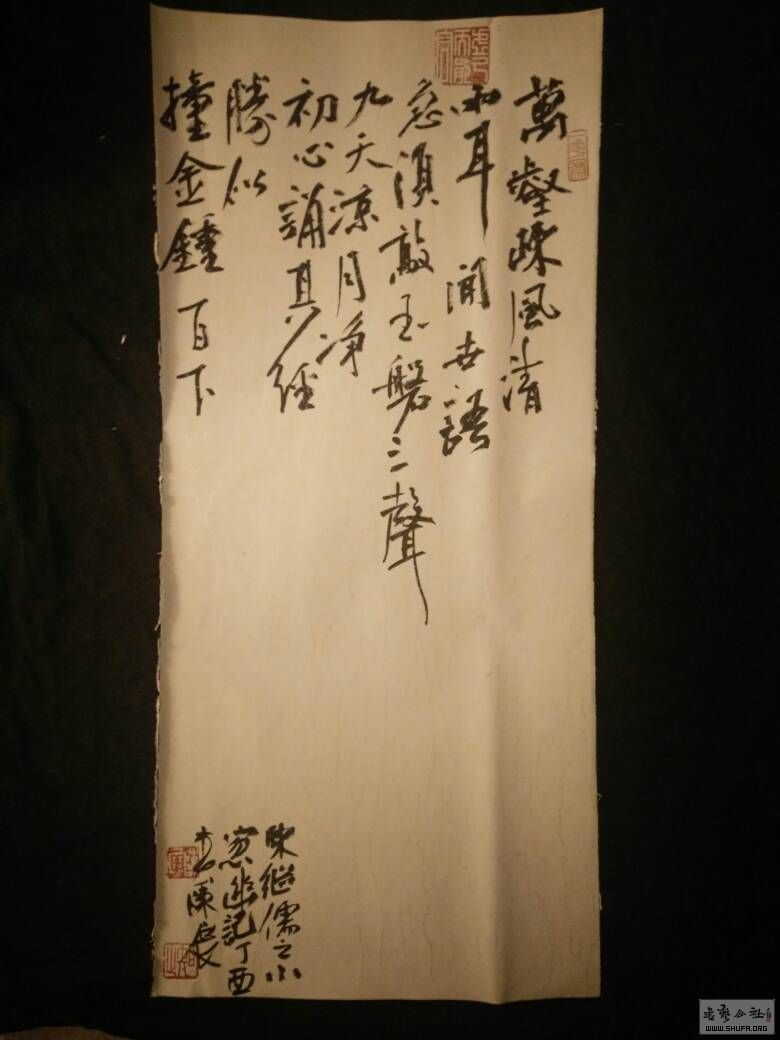 萬壑疎風清
兩耳聞世語
急須敲玉磬三聲
九天涼月净
初心誦其經
勝似
撞金鐘百下
陳繼儒之小
窗幽記丁酉
书艺公社
WWW.SHUFA.ORG